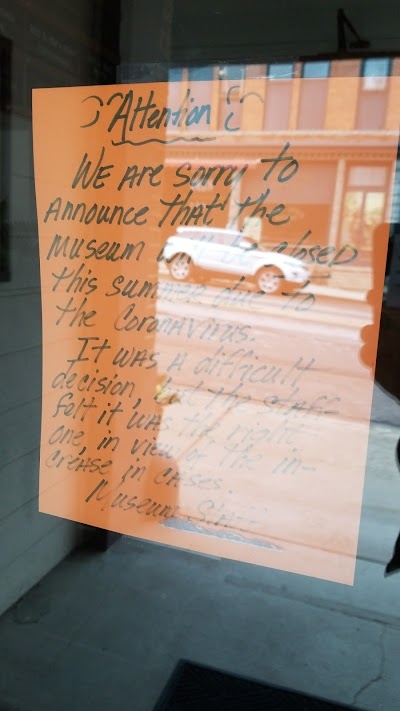 Attention
We are sorry to
announce that the
Museum will be closed
this summer due to
the Coronavirus.
It was a difficult
decision, but the staff
felt it was the right
one, in view of the in-
crease in cases.
Museum Staff